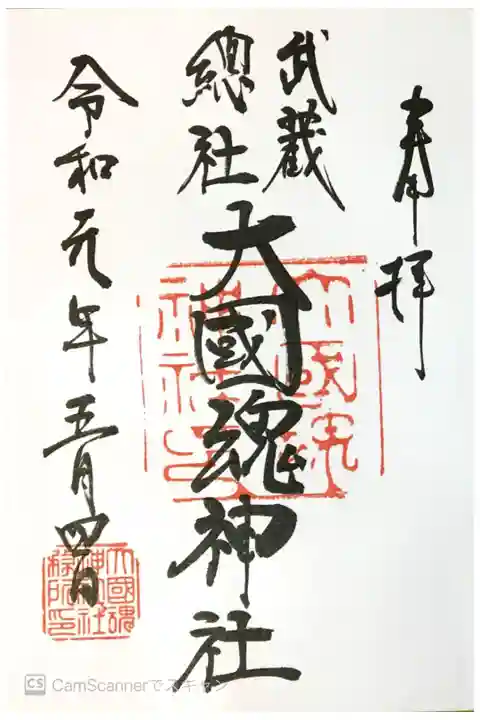 奉拝
武蔵
總社
大國魂神社
令和元年五月四日
大國魂
神社
CS CamScannerでスキャン